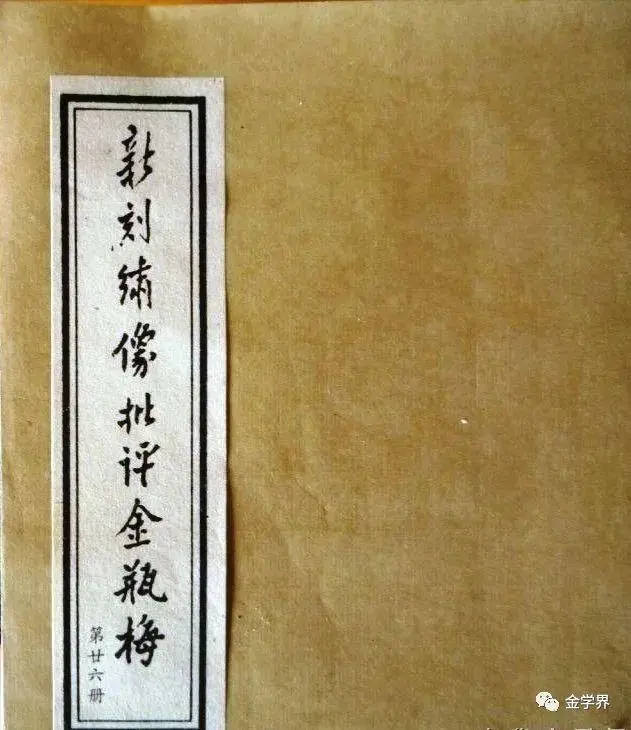 新刻绣像批评金瓶梅
第廿六册
金学界